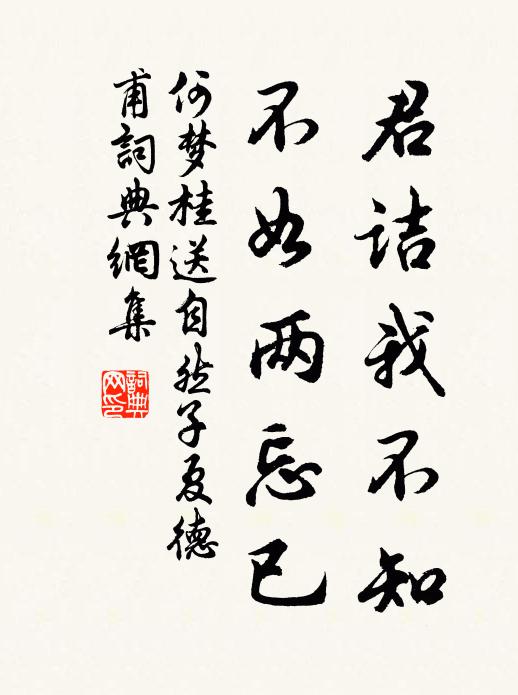 君诘我不知
不如两忘已
何梦桂送自然子夏德
甫詞典網集
詞典
网印